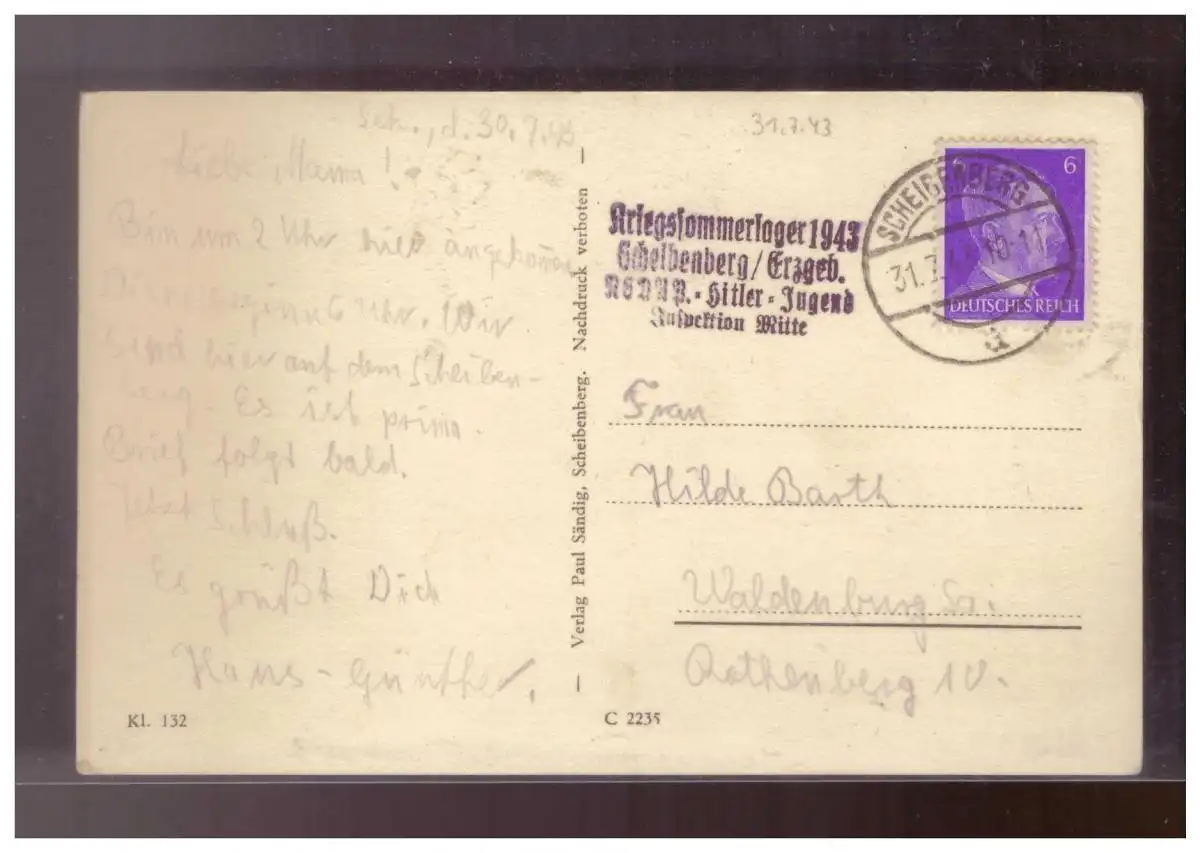 Sch., d. 30.7.43
Liebe Mama!
Bin um 2 Uhr hier angekommen
6 Uhr. Wir
sind hier auf dem Scheiben-
berg. Es ist prima.
Brief folgt bald.
Jetzt Schluß.
Es grüßt Dich
Hans-Günther.
KL 132
Verlag Paul Sändig, Scheibenberg. Nachdruck verboten
C 2235
31.7.43
Kriegssommerlager 1943
Scheibenberg/Erzgeb.
NSDAP.-Hitler-Jugend
Inspektion Mitte
SCHEIBENBERG
31.7.43 10-11
a
6 6
DEUTSCHES REICH
Frau
Hilde Barth
Waldenburg Sa.
Rothenberg 10.